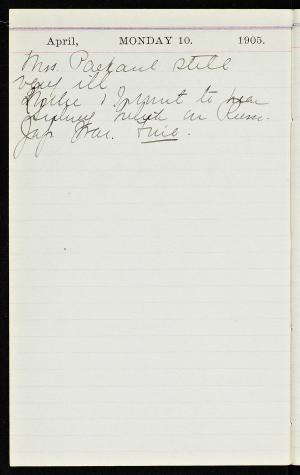 April, MONDAY 10. 1905.
Mrs. Packard still
very ill
& I went to hear
on Russ.
Jap War. Fine.